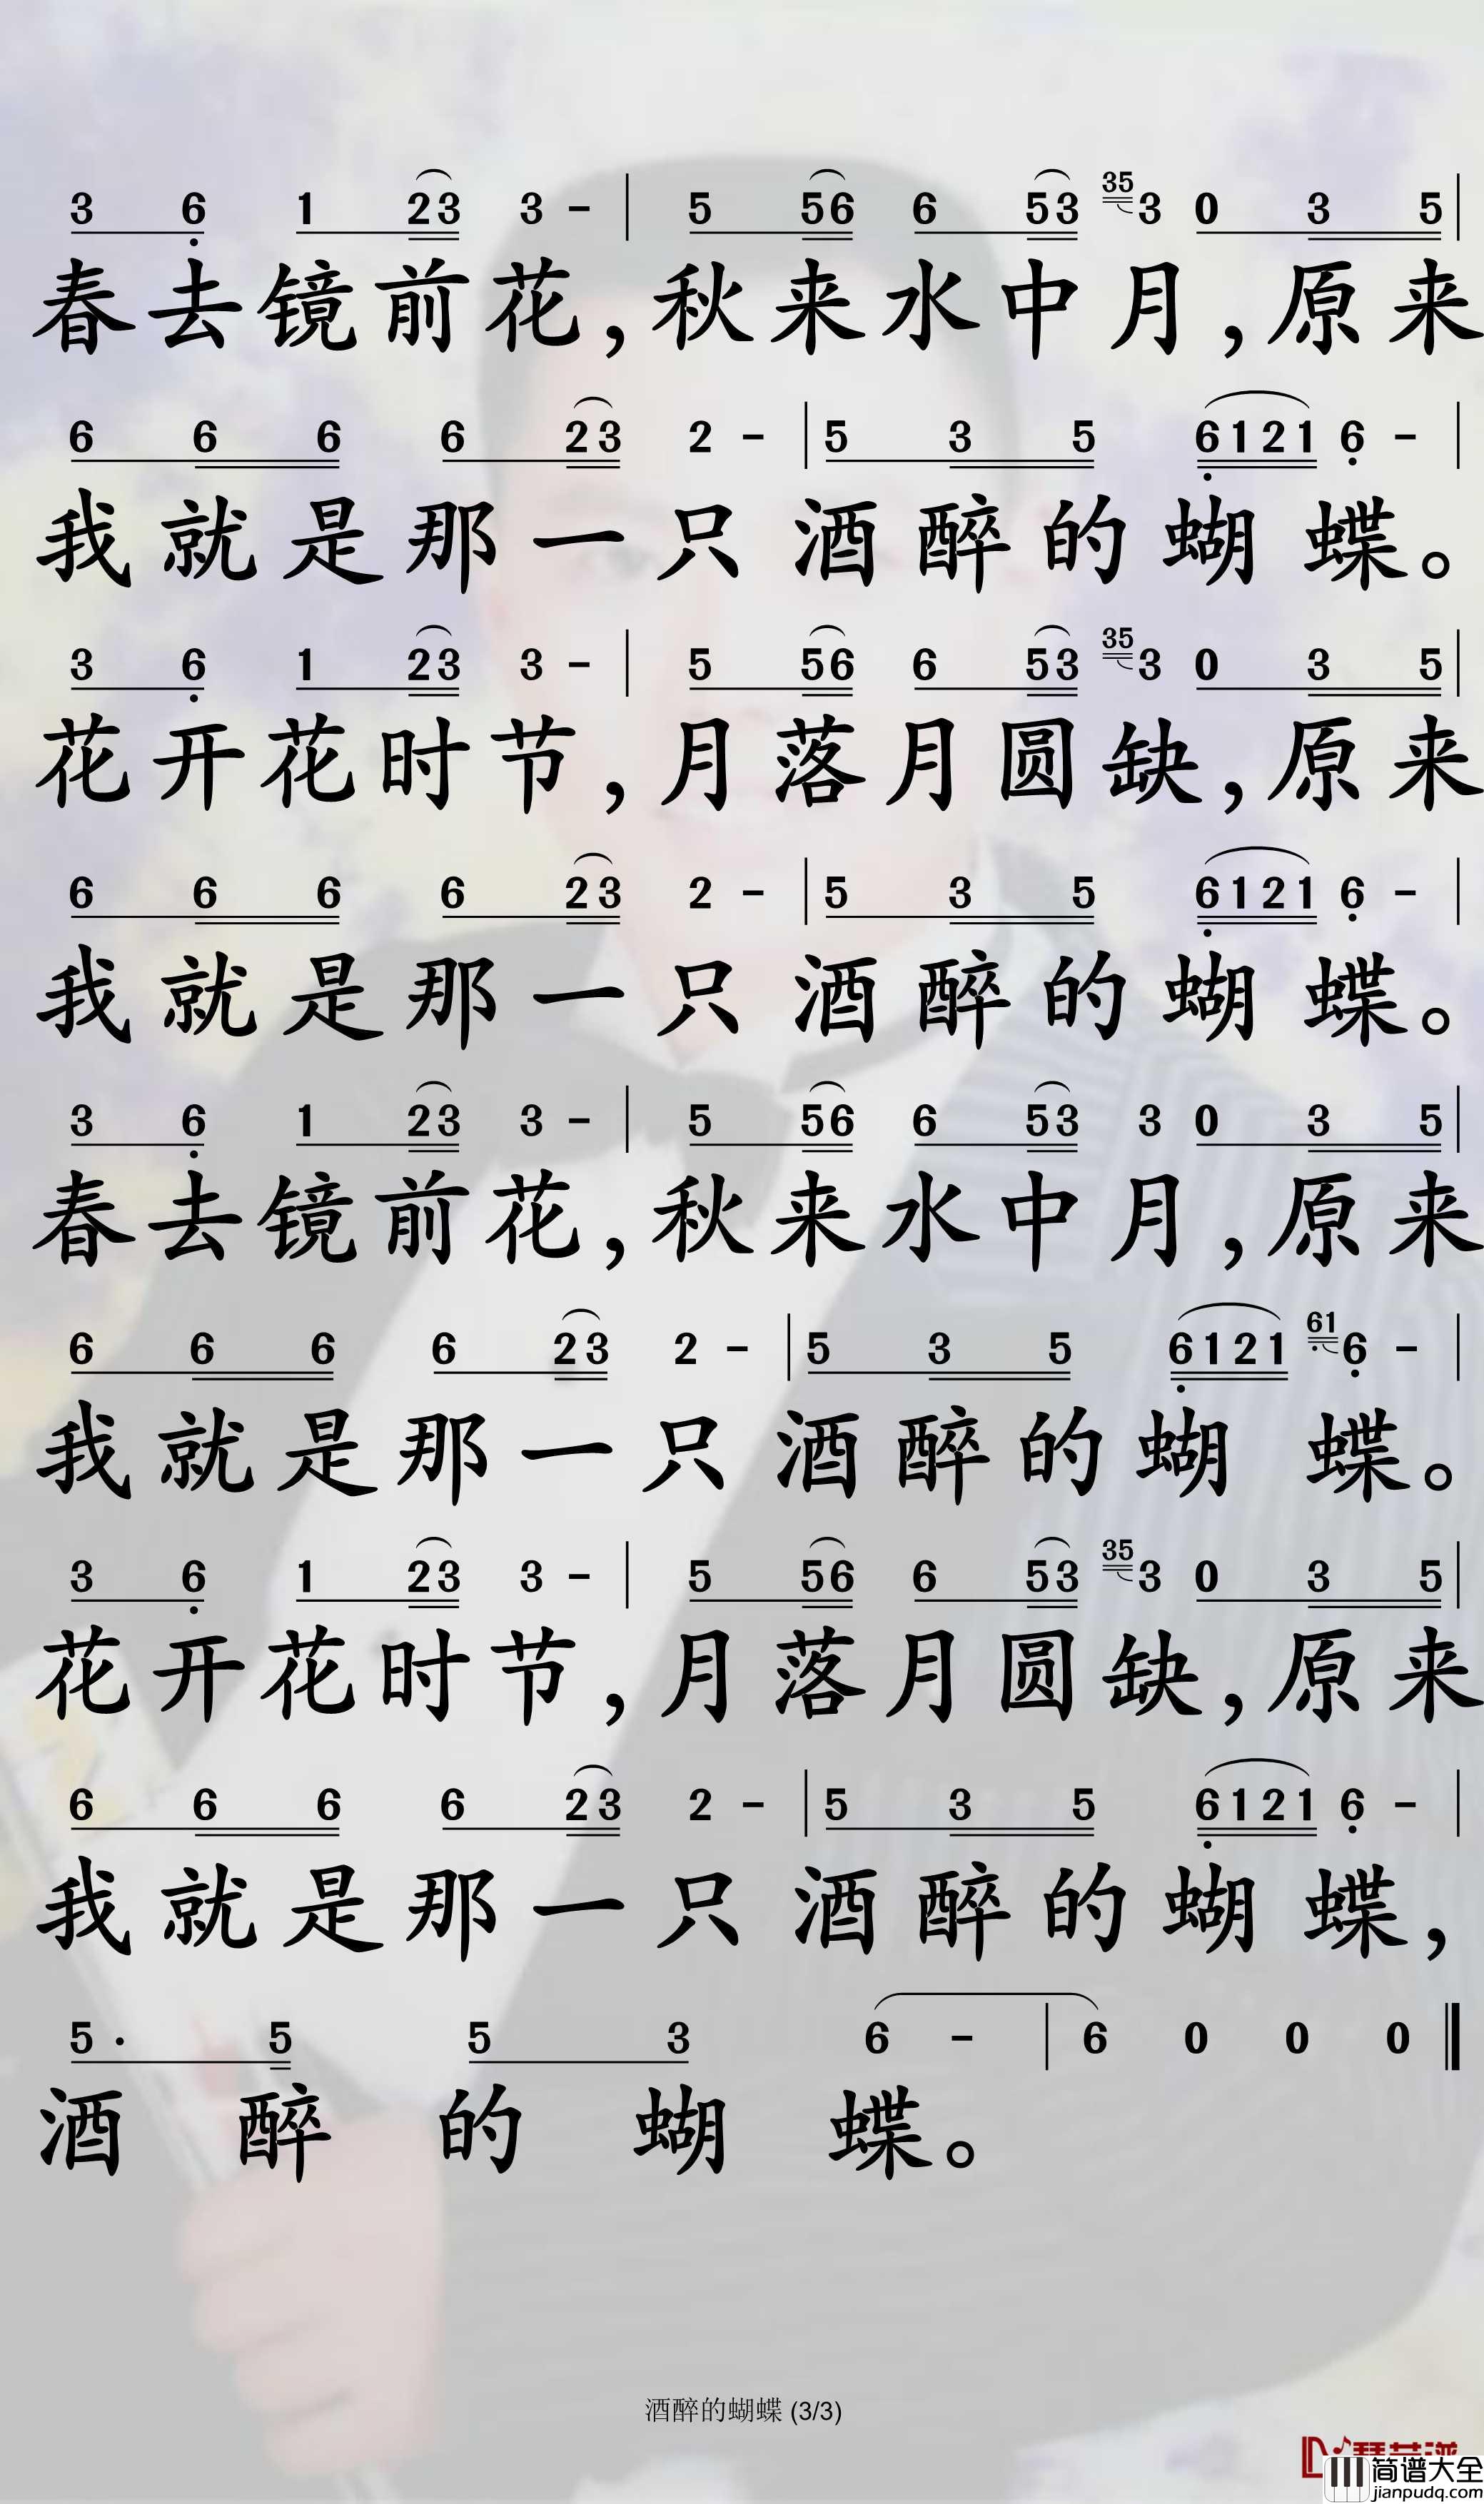 3 6 1 23 3 - | 5 56 6 53 35 3 0 3 5 |
春去镜前花，秋来水中月，原来
6 6 6 6 23 2 - | 5 3 5 6121 6 - |
我就是那一只酒醉的蝴蝶。
3 6 1 23 3 - | 5 56 6 53 35 3 0 3 5 |
花开花时节，月落月圆缺，原来
6 6 6 6 23 2 - | 5 3 5 6121 6 - |
我就是那一只酒醉的蝴蝶。
3 6 1 23 3 - | 5 56 6 53 3 0 3 5 |
春去镜前花，秋来水中月，原来
6 6 6 6 23 2 - | 5 3 5 6121 61 6 - |
我就是那一只酒醉的蝴蝶。
3 6 1 23 3 - | 5 56 6 53 35 3 0 3 5 |
花开花时节，月落月圆缺，原来
6 6 6 6 23 2 - | 5 3 5 6121 6 - |
我就是那一只酒醉的蝴蝶，
5· 5 5 3 6 - | 6 0 0 0 ‖
酒醉的蝴蝶。
酒醉的蝴蝶 (3/3)
简谱大全
jianpudq.com